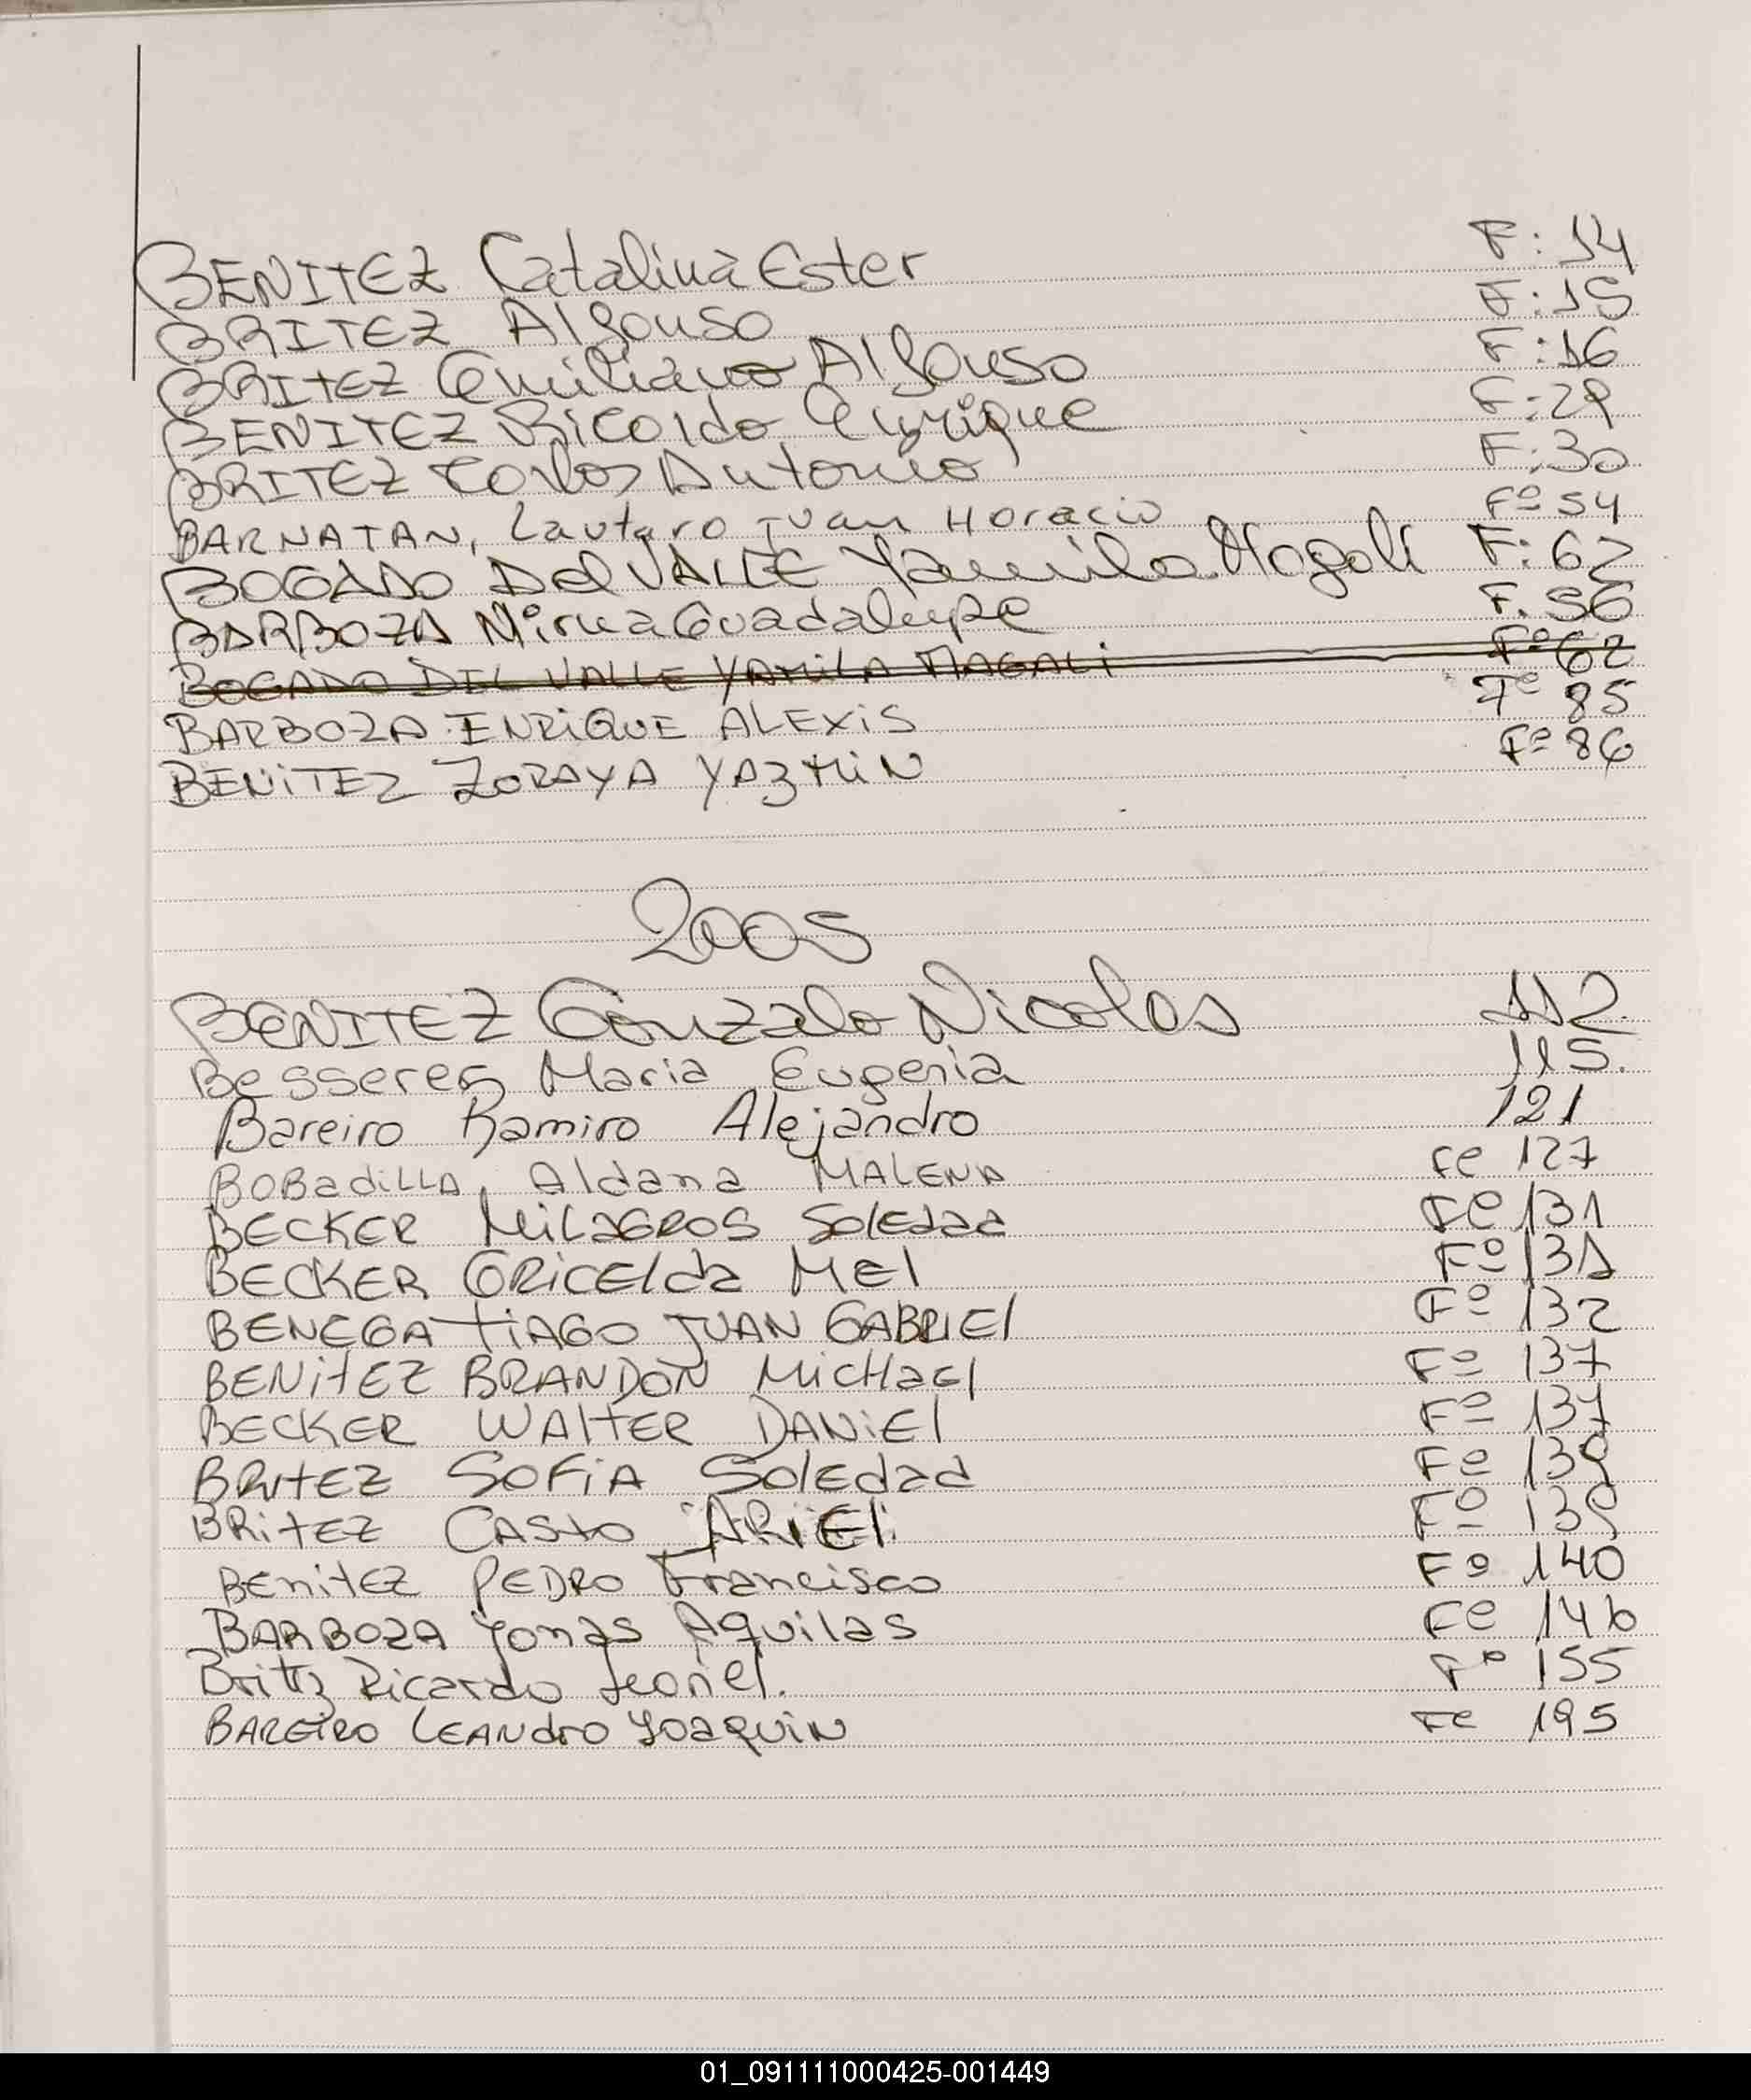 BENITEZ Catalina Ester F: 14
BRITEZ Alfonso F: 15
BRITEZ Emiliano Alfonso F: 16
BENITEZ Ricardo Enrique F: 29
BRITEZ Carlos Antonio F: 30
BARNATAN, Lautaro Juan Horacio Fº 54
BOGADO Del VALLE Yamila Magali F: 62
BARBOZA Mirna Guadalupe F. 56
BOGADO DEL VALLE YAMiLA MAGALi Fº 62
BARBOZA ENRiQUE ALEXiS Fº 85
BENiTEZ ZORAYA YAZMiN Fº 86
2005
BENITEZ Gonzalo Nicolas 112.
Besserer Maria Eugenia 115.
Bareiro Ramiro Alejandro 121
BOBadiLLA, Aldana MALENA Fº 127
BECKER MiLaGROS SolEdad Fº 131
BECKER GRicElda MEl Fº 131
BENEGA tiAGO JUAN GABRiEl Fº 132
BENitEZ BRANDON MicHaEl Fº 137
BECKER WAltER DANiEl Fº 137
BRitEZ SOFiA SolEdad Fº 139
BRitEZ CASto ARiEl Fº 139
BEnitEZ PEDRO Francisco Fº 140
BARBOZA Yonas Aquilas Fº 146
Britz Ricardo Leonel. Fº 155
BAREiRO LEANdro YOaquiN Fº 195
01_091111000425-001449